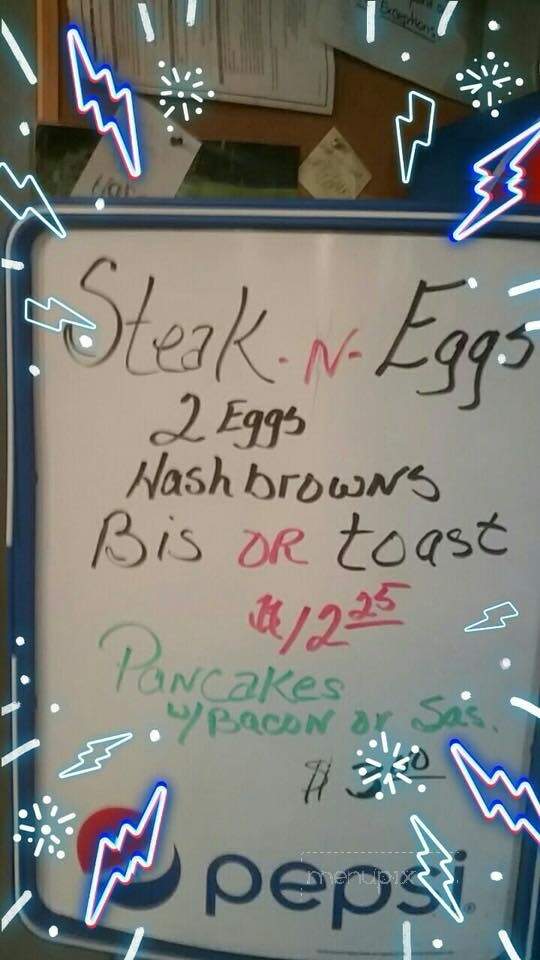 Exceptions
Steak -N- Eggs
2 Eggs
Hash browns
Bis OR toast
$12 25
Pancakes
w/ Bacon or Sas.
$
pepsi
menupix